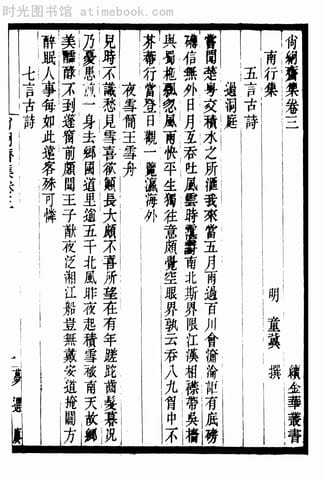 时光图书馆 - atimelife.com
尙絅齋集卷三 續金華叢書
南行集 明 童冀 撰
五言古詩
過洞庭
嘗聞楚粤交積水之所滙我來當五月南過百川會淪淪詎有底磅
礴信無外日月互吞吐風雲時靉靆南北斯界限江漢相襟帶吳檣
與蜀柂飄忽風雨快平生獨往意頗覺空眼界孰云吞八九胷中不
芥蔕行當登日觀一覽瀛海外
夜雪簡王雪舟
兒時不識愁見雪喜欲顚長大頗不喜所望在有年蹉跎齒髪暮況
乃憂思煎一身去鄉國道里邈五千北風昨夜起積雪破南天故鄉
美醽醁不到蓬窻前頗聞王子猷夜泛湘江船豈無戴安道掩關方
醉眠人事每如此遠客殊可憐
七言古詩
尙絅齋集卷三 一 夢選廎